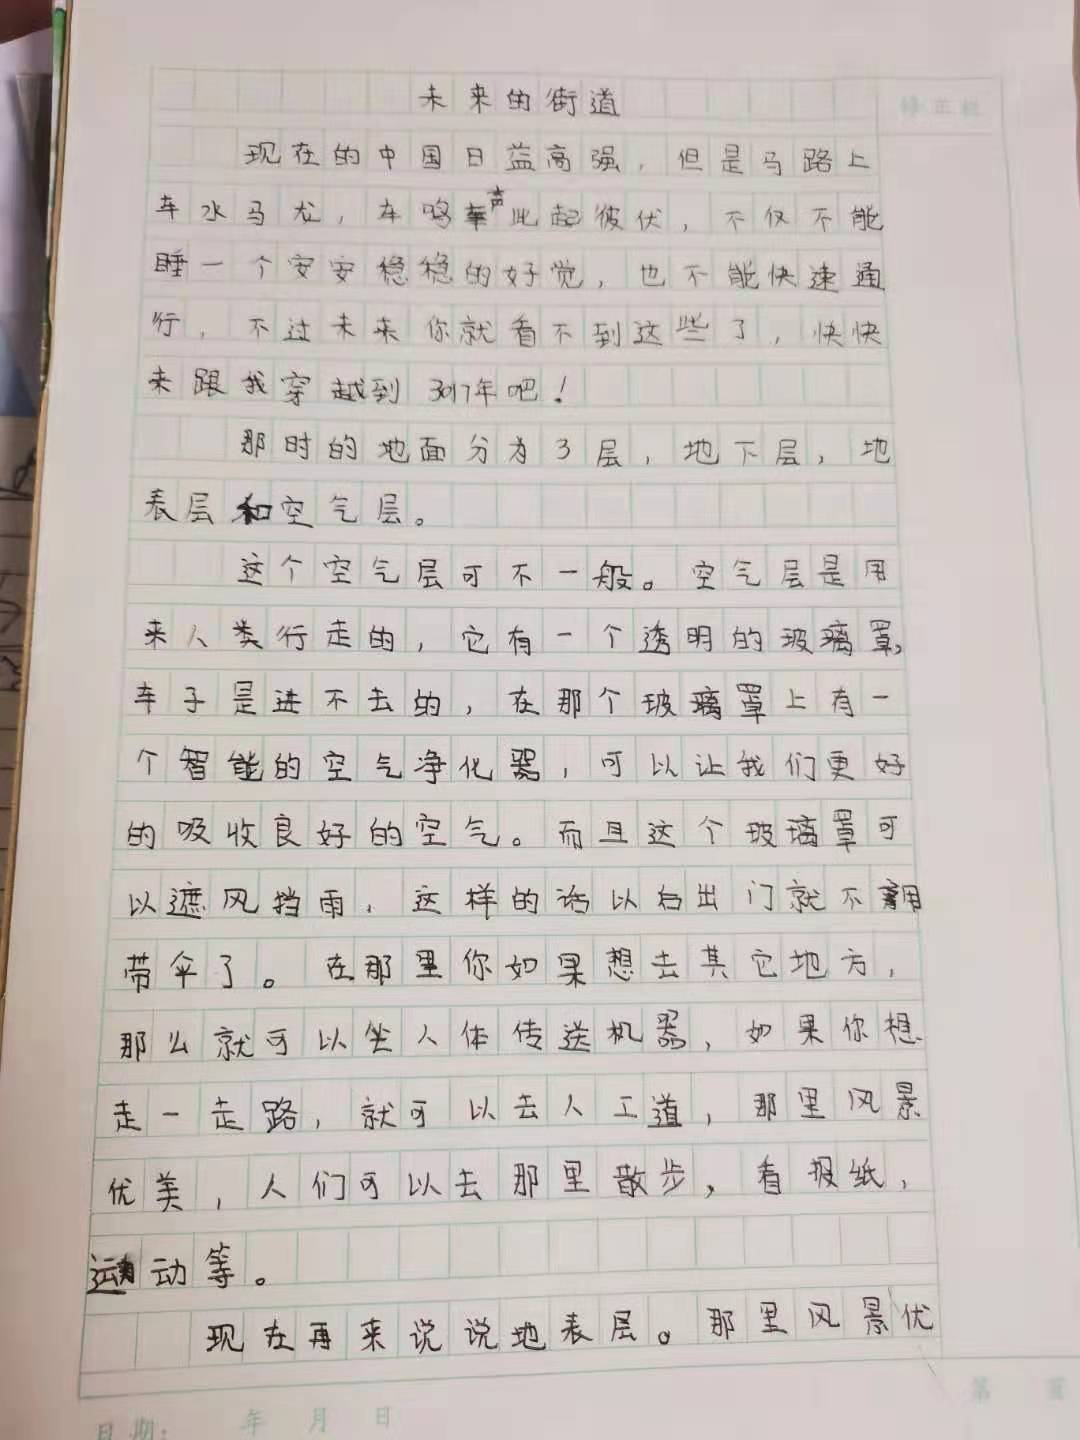 未来的街道
修正栏
现在的中国日益高强，但是马路上
车水马龙，车鸣声此起彼伏，不仅不能
睡一个安安稳稳的好觉，也不能快速通
行，不过未来你就看不到这些了，快快
来跟我穿越到3017年吧！
那时的地面分为3层，地下层，地
表层和空气层。
这个空气层可不一般。空气层是用
来人类行走的，它有一个透明的玻璃罩，
车子是进不去的，在那个玻璃罩上有一
个智能的空气净化器，可以让我们更好
的吸收良好的空气。而且这个玻璃罩可
以遮风挡雨，这样的话以后出门就不用
带伞了。在那里你如果想去其它地方，
那么就可以坐人体传送机器，如果你想
走一走路，就可以去人工道，那里风景
优美，人们可以去那里散步，看报纸，
运动等。
现在再来说说地表层。那里风景优
第 页
日期： 年 月 日